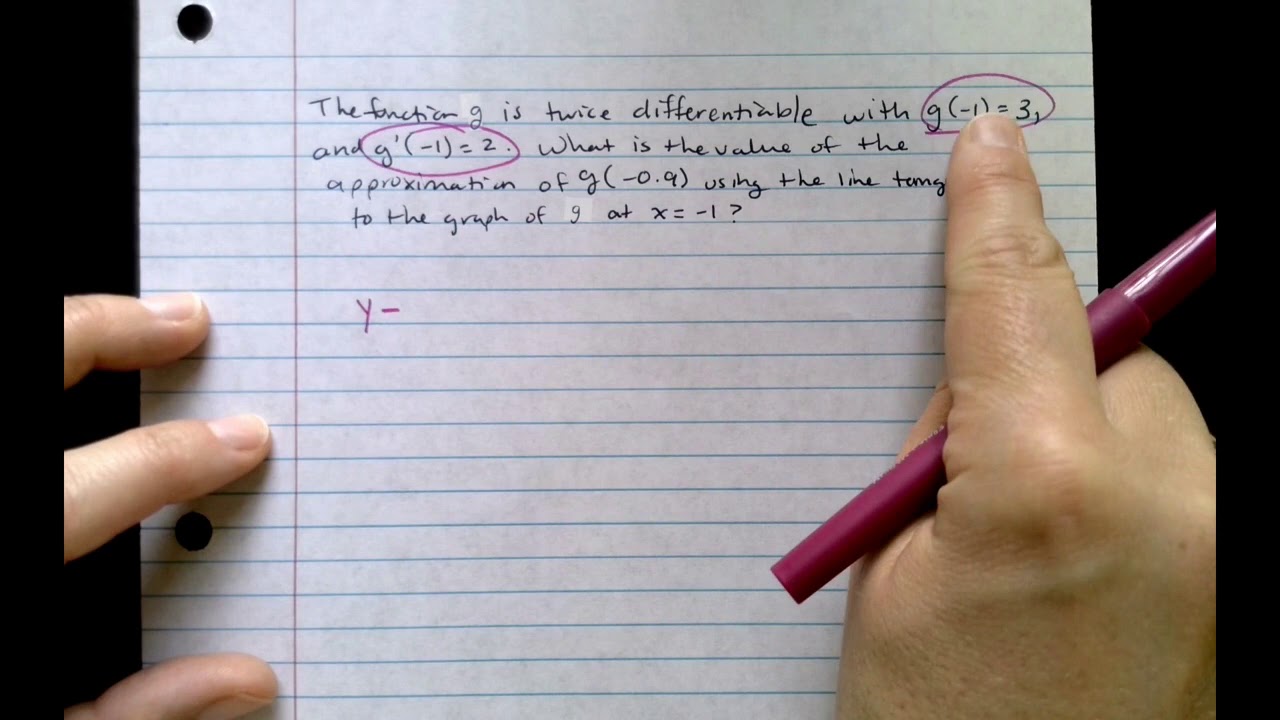 The function g is twice differentiable with g(-1) = 3,
and g'(-1) = 2. What is the value of the
approximation of g(-0.9) using the line
to the graph of g at x = -1?
y -